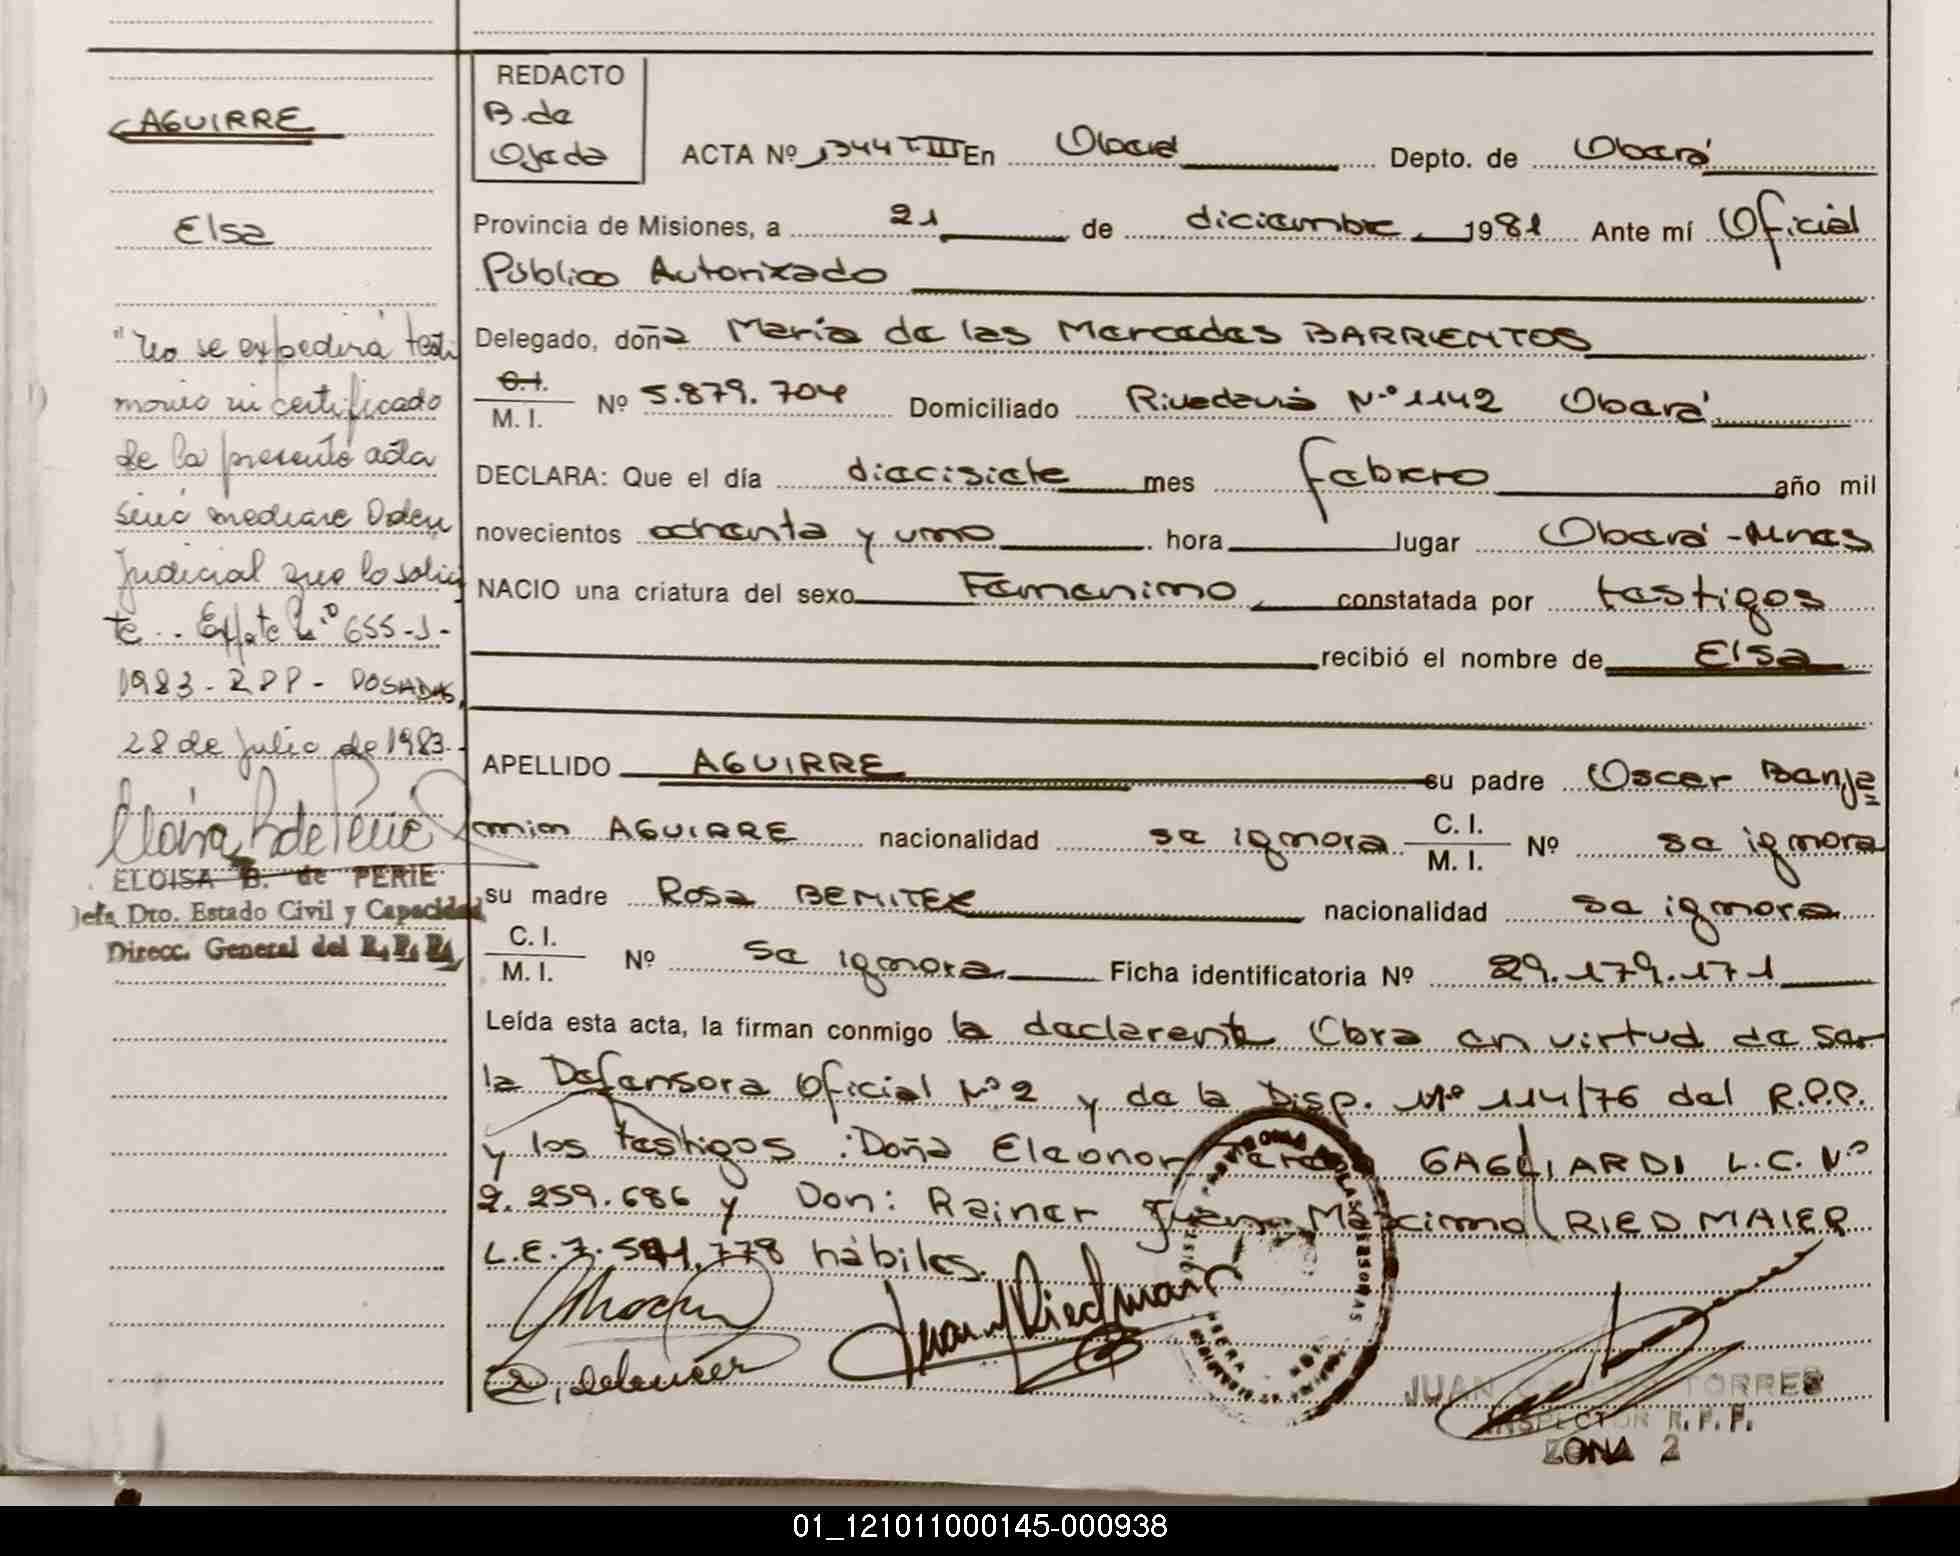 AGUIRRE
Elsa
"No se expedirá testi
monio ni certificado
de la presente acta
sinó mediare Orden
Judicial que lo solici
te.. Expte Nº 655-J-
1983- RPP- POSADAS,
28 de Julio de 1983.-
ELOISA B. de PERIE
Jefa Dto. Estado Civil y Capacidad
Direcc. General del R. P. P.
REDACTO
B. de
Ojeda
ACTA Nº 1344 T-III En Oberá Depto. de Oberá
Provincia de Misiones, a 21 de diciembre 1981 Ante mí Oficial
Público Autorizado
Delegado, doña María de las Mercedes BARRIENTOS
C.I.
M. I. Nº 5.879.704 Domiciliado Rivadavia Nº 1142 Oberá
DECLARA: Que el día diecisiete mes febrero año mil
novecientos ochenta y uno hora lugar Oberá-Mnes
NACIO una criatura del sexo Femenino constatada por testigos
recibió el nombre de Elsa
APELLIDO AGUIRRE su padre Oscar Benja
min AGUIRRE nacionalidad se ignora C. I. M. I. Nº se ignora
su madre Rosa BENITEZ nacionalidad se ignora
C. I. M. I. Nº se ignora Ficha identificatoria Nº 29.179.171
Leída esta acta, la firman conmigo la declarente Obra en virtud de ser
la Defensora Oficial Nº 2 y de la Disp. Nº 114/76 del R.P.P.
y los testigos: Doña Eleonor GAGLIARDI L.C. Nº
2.259.686 y Don: Rainer Juan Máximo RIEDMAIER
L.E. 7.541.778 hábiles.
JUAN TORRES
INSPECTOR R. P. P.
ZONA 2
01_121011000145-000938